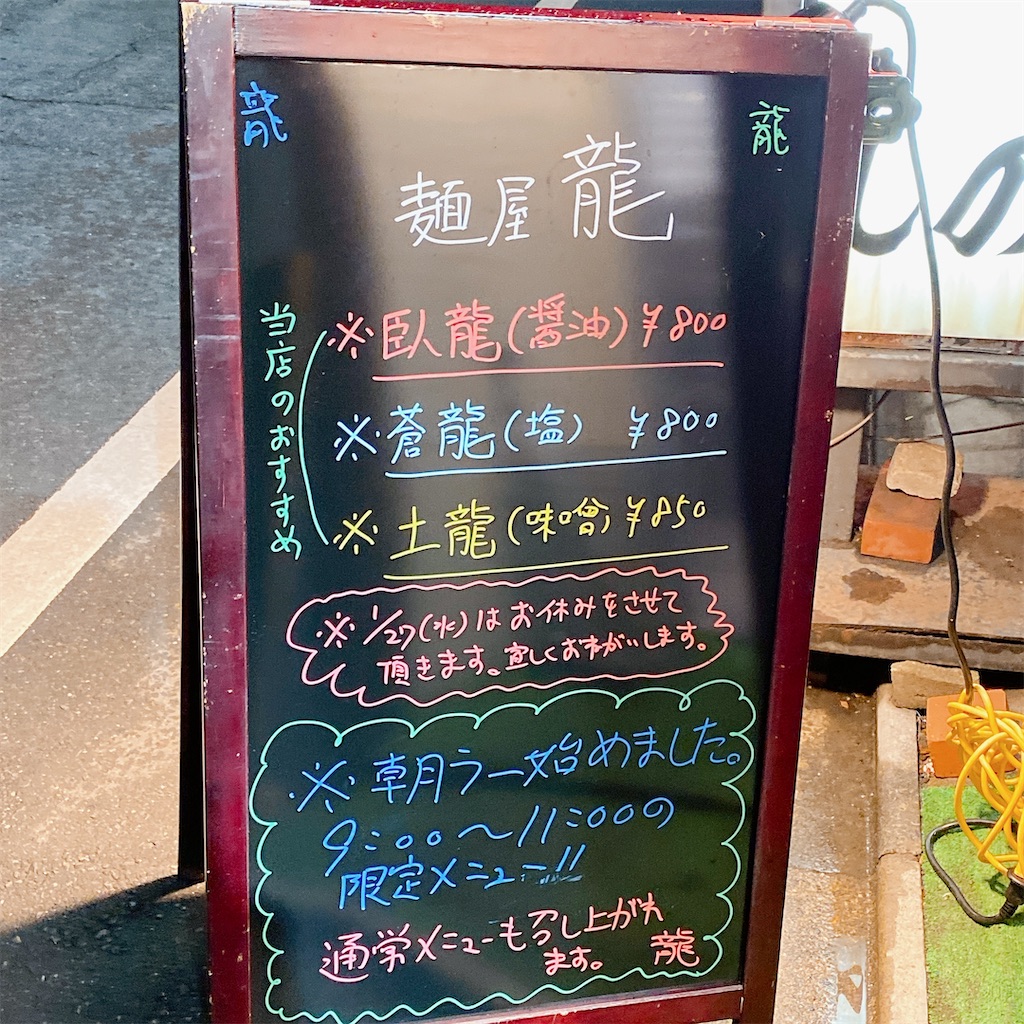 龍
龍
麺屋 龍
当店のおすすめ
※臥龍(醤油)¥800
※蒼龍(塩) ¥800
※土龍(味噌)¥850
※1/27(水)はお休みをさせて
頂きます。宜しくおねがいします。
※朝ラー始めました。
9:00〜11:00の
限定メニュー!!
通学メニューも召し上がれ
ます。 龍